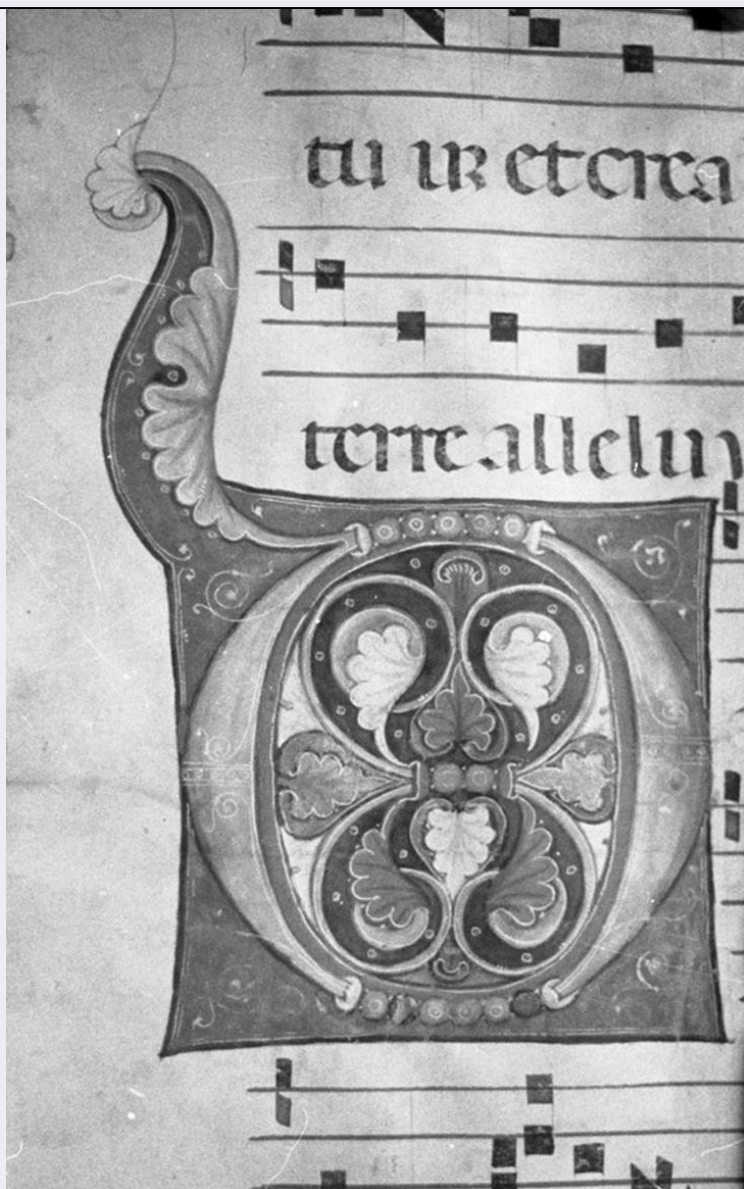 tu ur et crea
terre allelu